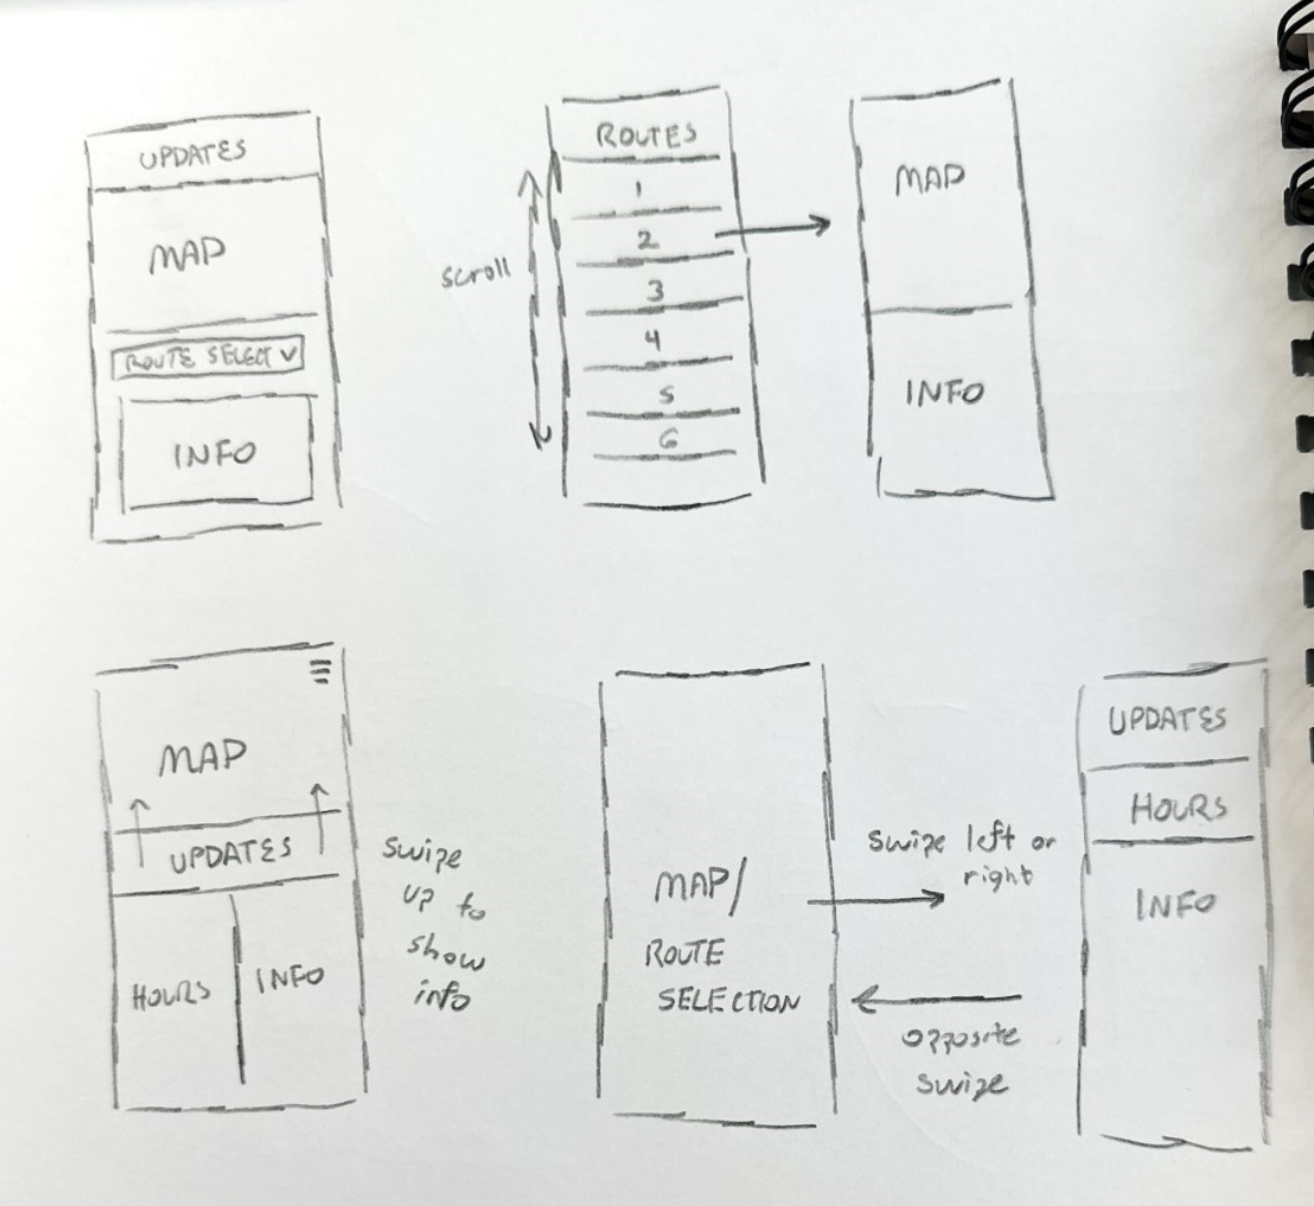 UPDATES
MAP
ROUTE SELECT
INFO
scroll
ROUTES
1
2
3
4
5
6
MAP
INFO
MAP
UPDATES
HOURS
INFO
Swipe
up to
show
info
MAP/
ROUTE
SELECTION
Swipe left or
right
opposite
swipe
UPDATES
HOURS
INFO